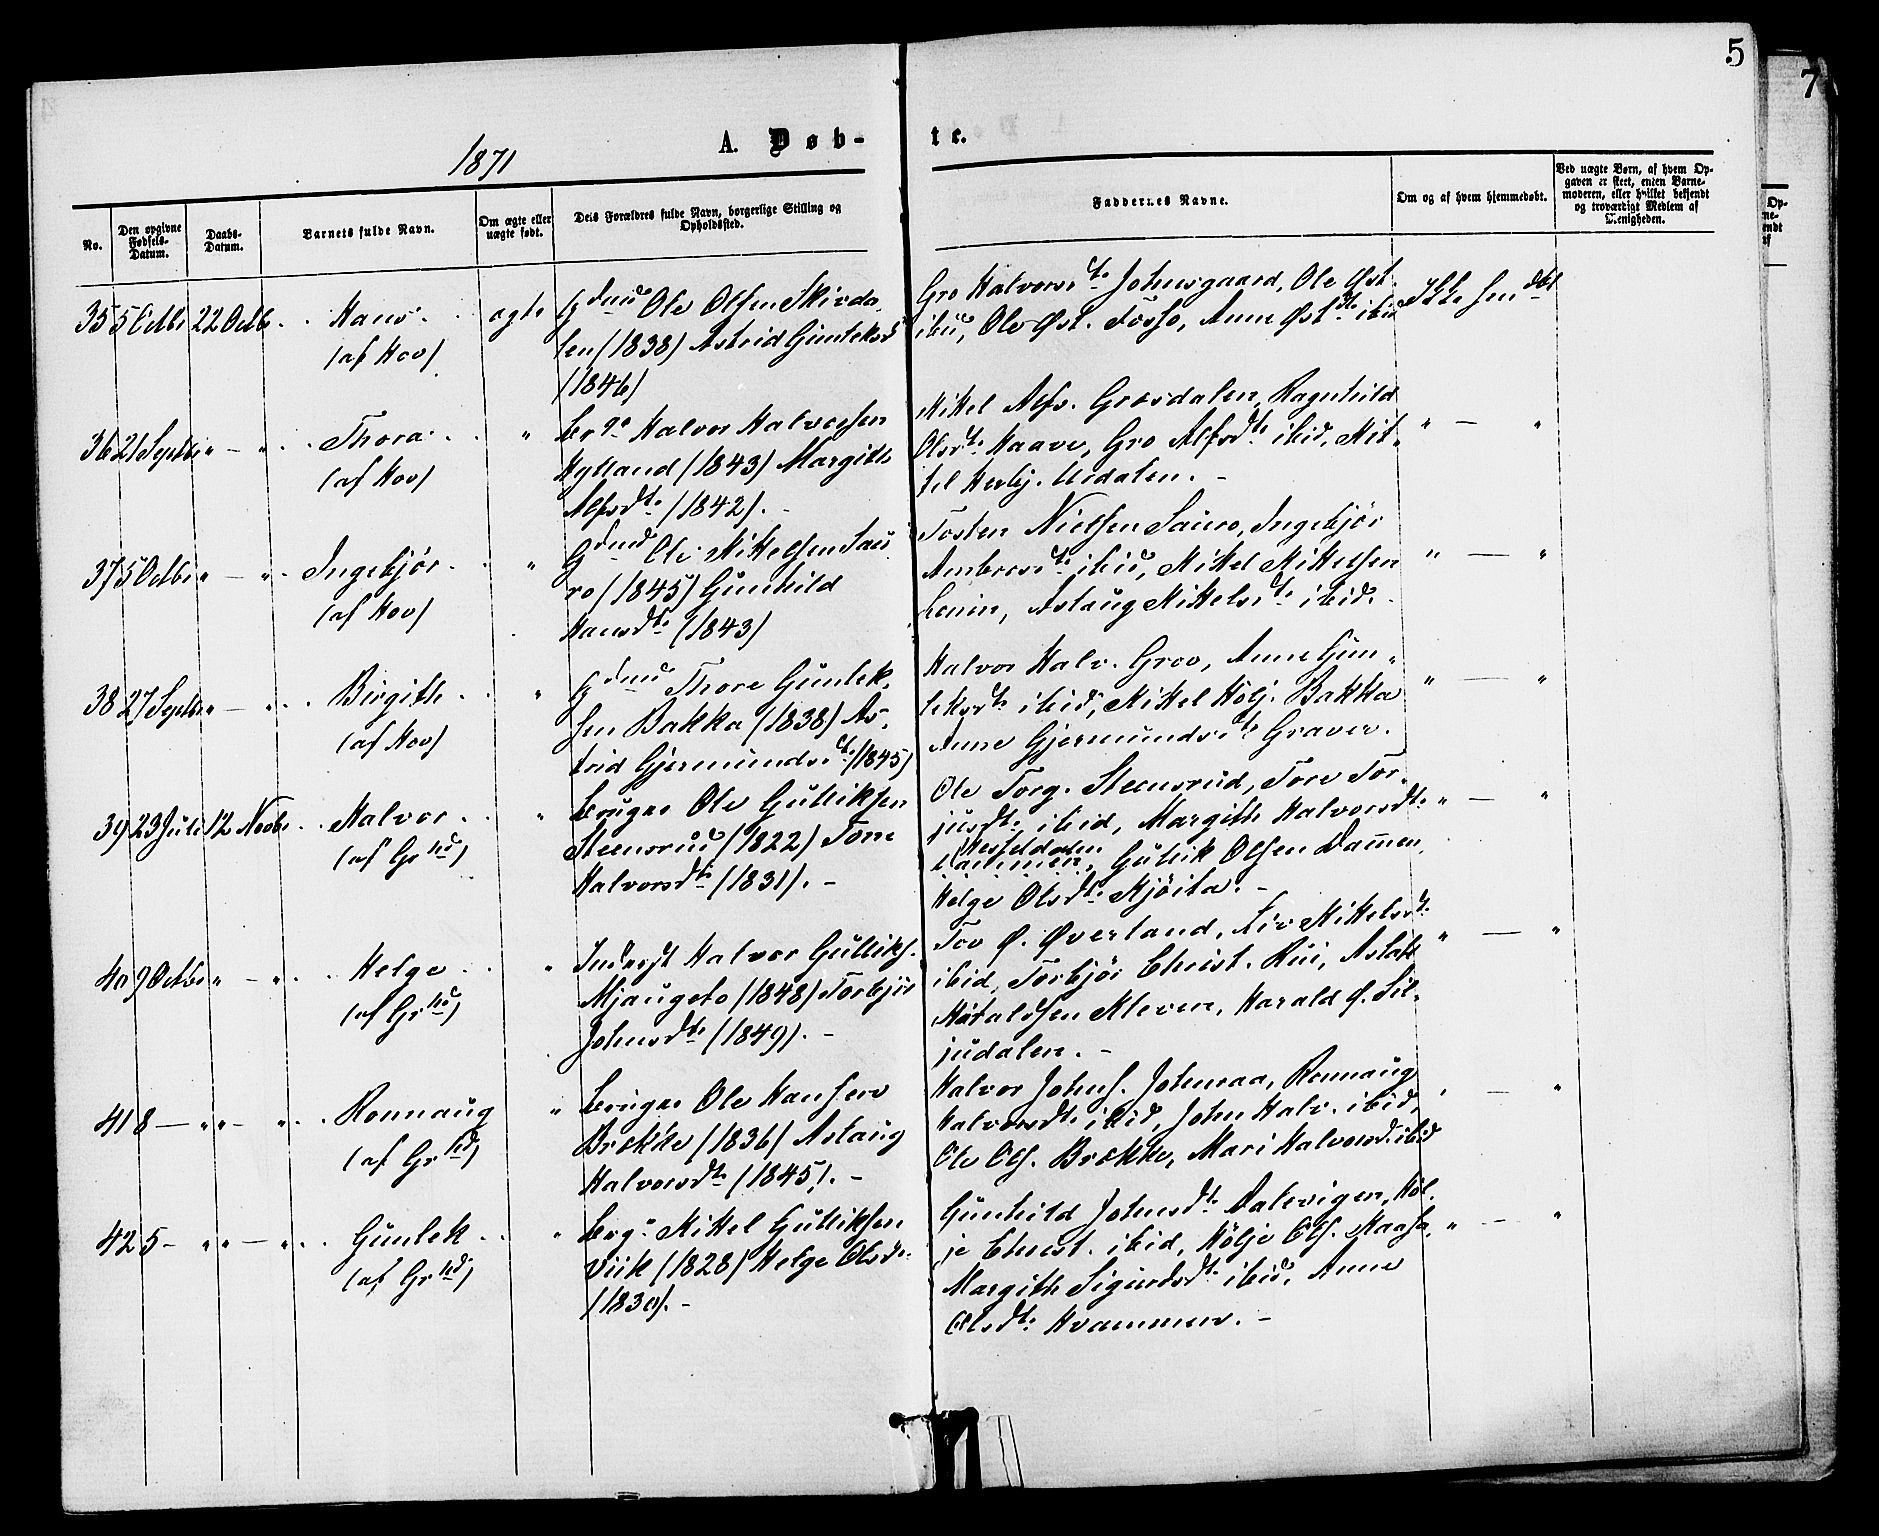 5
7
1871
A. Døb-
te.
No.
Den opgivne Fødsels-Datum.
Daabs-Datum.
Barnets fulde Navn.
Om ægte eller uægte født.
Deis Forældres fulde Navn, borgerlige Stilling og Opholdssted.
Faddernes Navne.
Om og af hvem hjemmedøbt.
Ved uægte Børn, af hvem Op-
gaven er skeet, enten Barne-
moderen, eller hvilket bekjendt
og troværdigt Medlem af
Menigheden.
35 5 Octbr 22 Octb. Hans. ægte Gdmd Ole Olsen Skivda-
(af Hov) sen (1838) Astrid Gunleksd
(1846)
Gro Halvorsdt. Johnsgaard, Ole Øst.
ibid, Ole Øst. Fosso, Anne Østdt. ibid
Ikke hmdbt
36 21 Septbr " — " Thora. " Brgr Halvor Halvorsen
(af Hov) Hylland (1843) Margith
Alfsdt. (1842). -
Mikel Alfs. Grosdalen, Ragnhild
Olsdt. Haave, Gro Alfsdt. ibid, Kit-
til Herbj. Uvdalen. -
" — "
37 5 Octbr " — " Ingebjør. " Gdmd Ole Mikelsen Sau-
(af Hov) ro (1845) Gunhild
Hansdt. (1843)
Tosten Nielsen Sauro, Ingebjør
Ambrosdt. ibid, Mikel Mikelsen
Aslaug Mikelsdt. ibid.
" — "
38 27 Septbr " — " Birgith. " Gdmd Thore Gunlek-
(af Hov) sen Bakka (1838) As-
trid Gjermundsdt. (1845)
Halvor Halv. Grov, Anne Gun-
leksdt. ibid, Mikel Hölj. Bakka
Anne Gjermundsdt. Graver.
" — "
39 23 Juli 12 Novbr Halvor. " Bruger Ole Gulliksen
(af Grhd) Steensrud (1822) Tone
Halvorsdt. (1831). -
Ole Torg. Steensrud, Tore Tor-
jusdt. ibid, Margith Halvorsdt.
Gullik Olsen Dammen,
Helge Olsdt. Kjöita. -
" — "
40 9 Octbr " — " Helge. " Inderst Halvor Gulliks.
(af Grhd) Mjaugeto (1848) Torbjör
Johnsdt. (1849). -
Tov Ø. Øverland, Liv Mikelsdt.
ibid, Torbjör Christ. Rui, Aslak
Haraldsen Kleven, Harald Ø. Sil-
judalen. -
" — "
41 8 — " " — " Ronnaug " Bruger Ole Hansen
(af Grhd) Brokke (1836) Aslaug
Halvorsdt. (1845). -
Halvor Johns. Johnsaa, Ronnaug
Halvorsdt. ibid, John Halv. ibid,
Ole Ols. Brokke, Mari Halvorsd. ibid
" — "
42 5 — " " — " Gunlek. " Brgr Mikel Gulliksen
(af Grhd) Viik (1828) Helge Olsdt.
(1830). -
Gunhild Johnsdt. Dalevigen, Höl-
je Christ. ibid, Hölje Ols. Haasa,
Margith Sigurdsdt. ibid, Anne
Olsdt. Hvammen. -
" — "